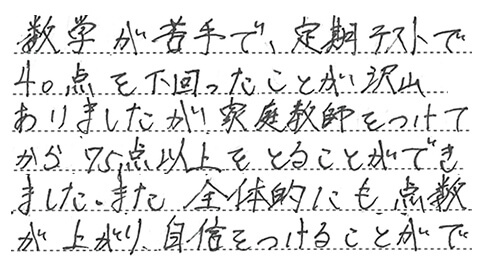 数学が苦手で、定期テストで
40点を下回ったことが沢山
ありましたが家庭教師をつけて
から75点以上をとることができ
ました。また全体的にも点数
が上がり、自信をつけることがで